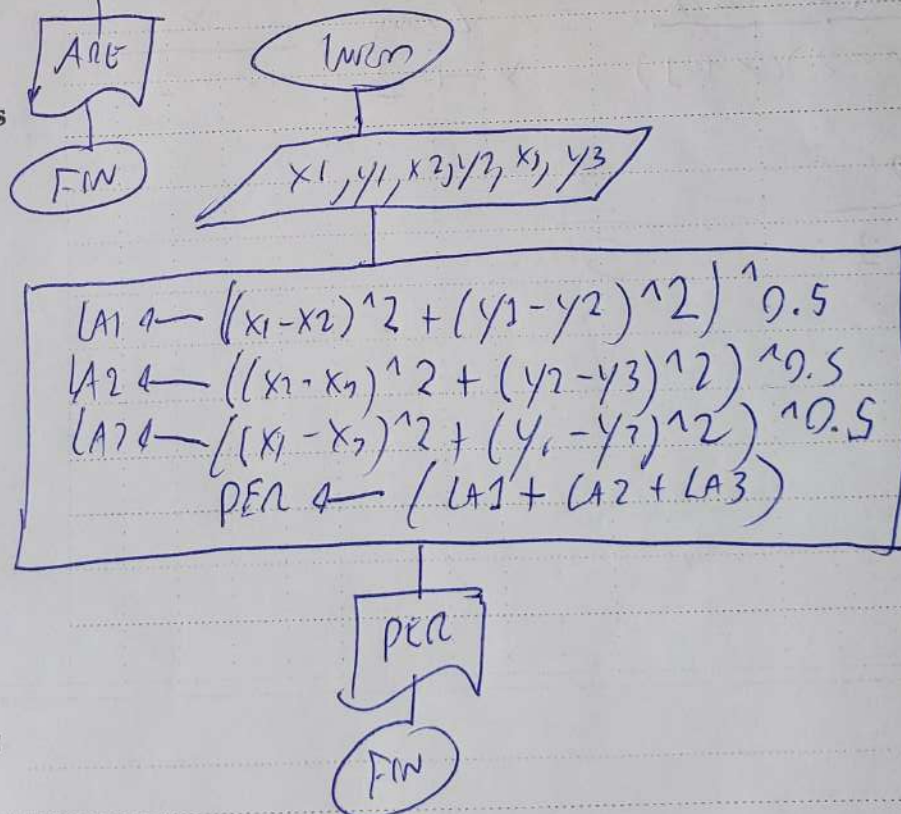 s
ARE
FIN
Inicio
x1, y1, x2, y2, x3, y3
LA1 ← ((x1-x2)^2 + (y1-y2)^2)^0.5
LA2 ← ((x2-x3)^2 + (y2-y3)^2)^0.5
LA3 ← ((x1-x3)^2 + (y1-y3)^2)^0.5
PER ← (LA1 + LA2 + LA3)
PER
FIN